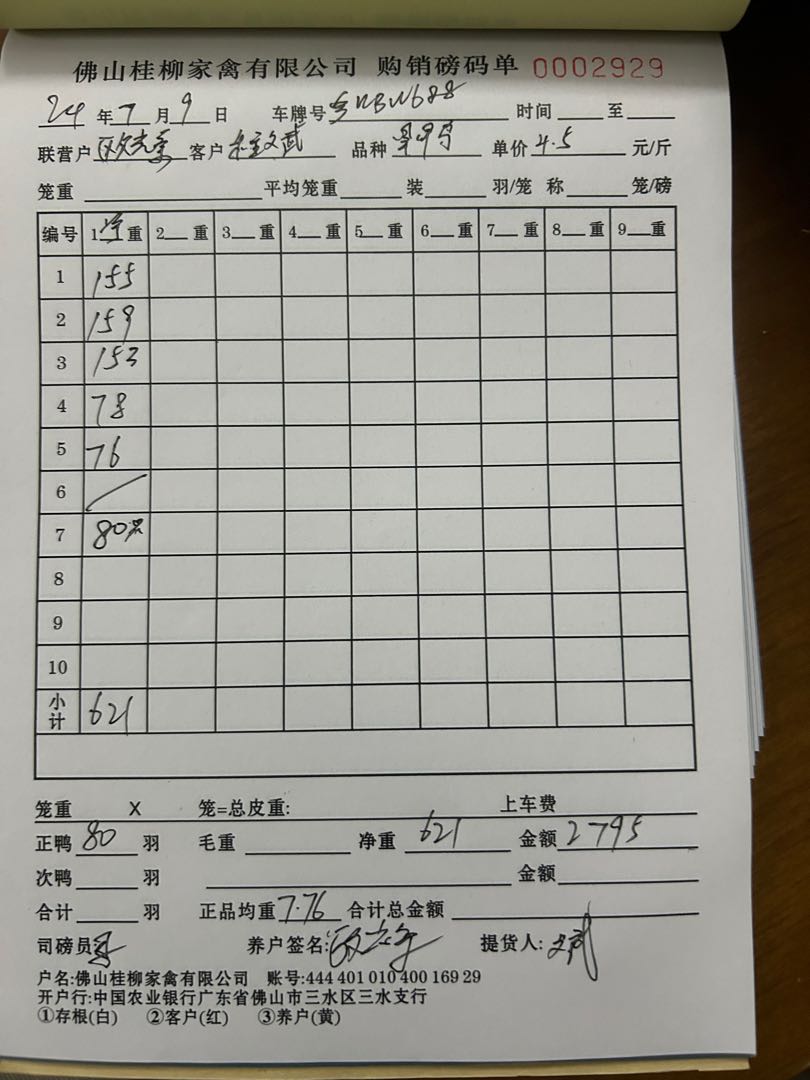 佛山桂柳家禽有限公司 购销磅码单 0002929
24年7月9日 车牌号 时间 至
联营户 客户 品种 单价4.5元/斤
笼重 平均笼重 装 羽/笼 称 笼/磅
编号 1 重 2 重 3 重 4 重 5 重 6 重 7 重 8 重 9 重
1 155
2 159
3 153
4 78
5 76
6
7 80只
8
9
10
小计 621
笼重 X 笼=总皮重: 上车费
正鸭 80 羽 毛重 净重 621 金额 2795
次鸭 羽 金额
合计 羽 正品均重 7.76 合计总金额
司磅员 养户签名: 提货人:
户名:佛山桂柳家禽有限公司 账号:444 401 010 400 169 29
开户行:中国农业银行广东省佛山市三水区三水支行
①存根(白) ②客户(红) ③养户(黄)